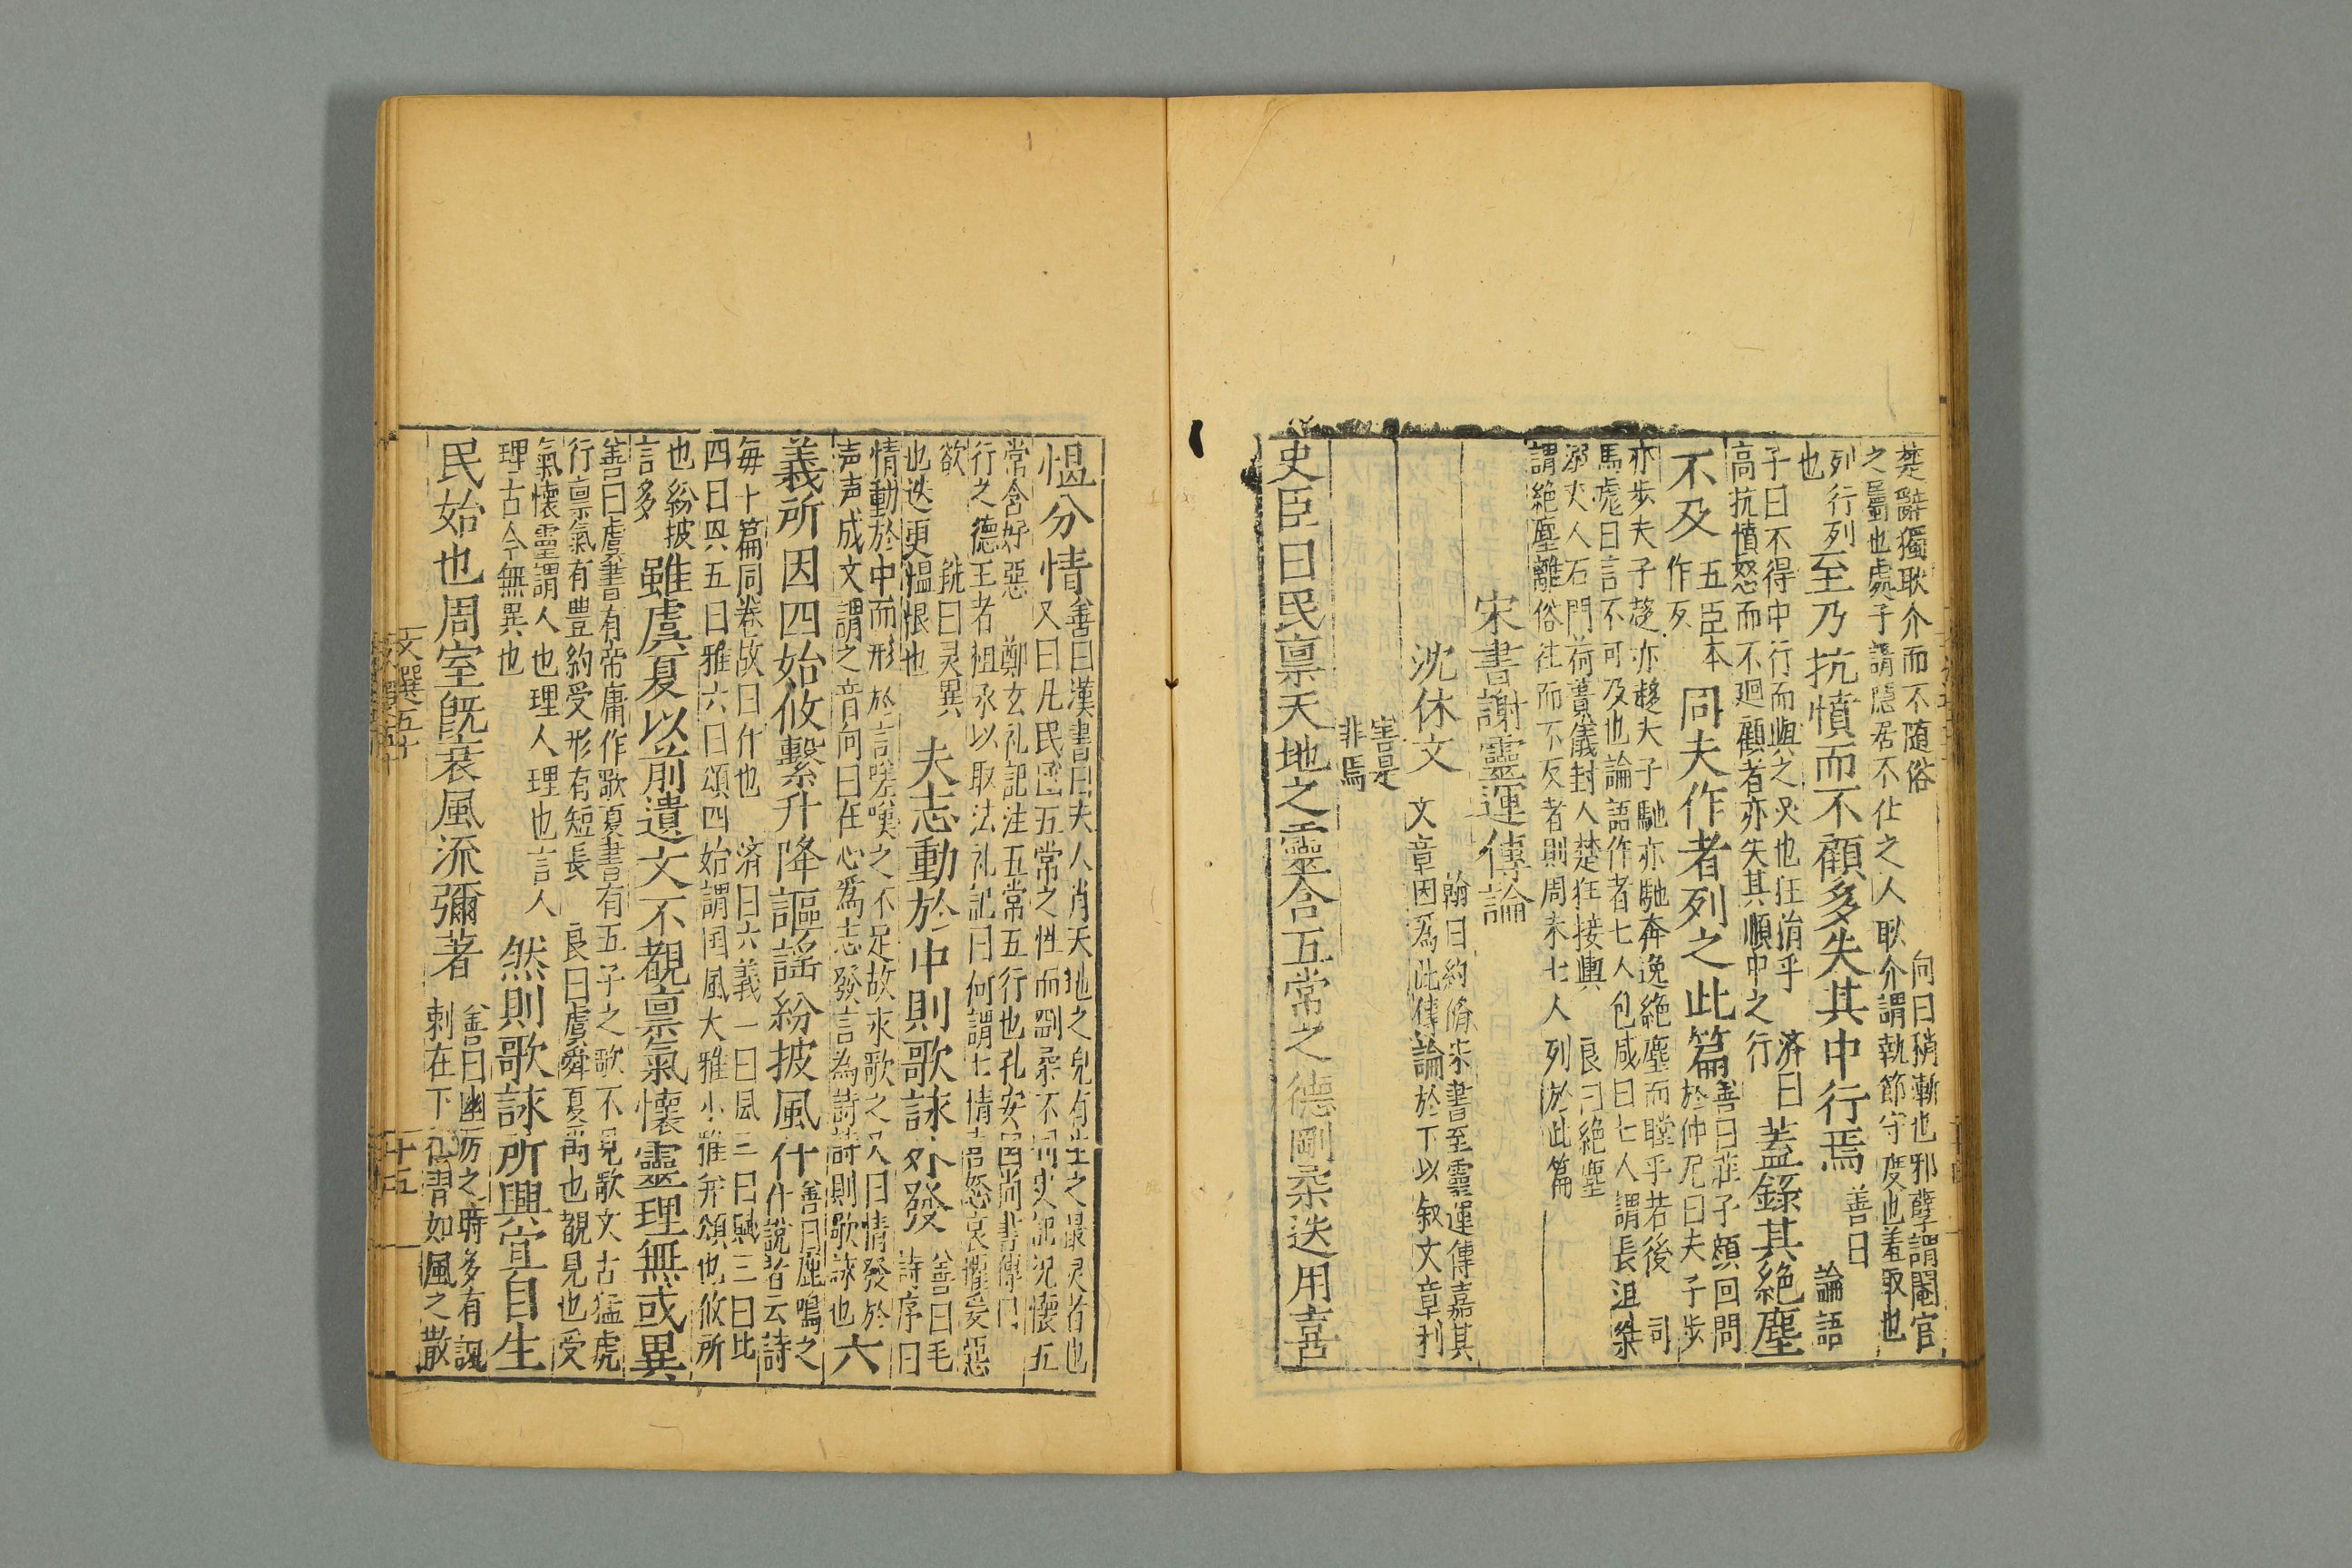 楚辭獨耿介而不隨俗　向曰稍漸也邪孽謂閹官
之蜀也處子謂隱居不仕之人耿介謂執節守度也羞取也
列行列
也
至乃抗憤而不顧多失其中行焉
善曰
論語
子曰不得中行而與之必也狂狷乎　済曰
高抗憤怒而不廻顧者亦失其順中之行
蓋錄其絶塵
不及
五臣本
作反
同夫作者列之此篇
善曰莊子顏回問
於仲尼曰夫子步
亦步夫子趍亦趍夫子馳亦馳奔逸絶塵而瞠乎若後　司
馬彪曰言不可及也論語作者七人包咸曰七人謂長沮桀
溺丈人石門荷蕢儀封人楚狂接輿　良曰絶塵
謂絶塵離俗往而不反者則周末七人列於此篇
宋書謝靈運傳論
沈休文
翰曰約脩宋書至靈運傳嘉其
文章因爲此傳論於下以叙文章利
害是
非焉
史臣曰民禀天地之靈含五常之德剛柔迭用喜
愠分情
善曰漢書曰夫人肖天地之皃有生之最灵者也
又曰凡民函五常之性而剛柔不同史記況懷五
常含好惡　鄭玄礼記注五常五行也孔安国尚書傳曰
行之德王者相承以取法礼記曰何謂七情喜怒哀懼愛惡
欲　銑曰灵異
也迭更愠恨也
夫志動於中則歌詠外發
善曰毛
詩序曰
情動於中而形於言嗟嘆之不足故永歌之又曰情發於
声声成文謂之音向曰在心爲志發言為詩詩則歌詠也
六
義所因四始攸繫升降謳謠紛披風什
善曰鹿鳴之
什說者云詩
毎十篇同卷故曰什也　済曰六義一曰風二曰賦三曰比
四曰興五曰雅六曰頌四始謂国風大雅小雅并頌也攸所
也紛披
言多
雖虞夏以前遺文不覩禀氣懷靈理無或異
善曰虞書有帝庸作歌夏書有五子之歌不見歌文古猛虎
行禀氣有豊約受形有短長　良曰虞舜夏禹也覩見也受
氣懷靈謂人也理人理也言人
理古今無異也
然則歌詠所興宜自生
民始也周室旣衰風流彌著
善曰幽厉之時多有諷
刺在下
如風之散
文選五十
十五